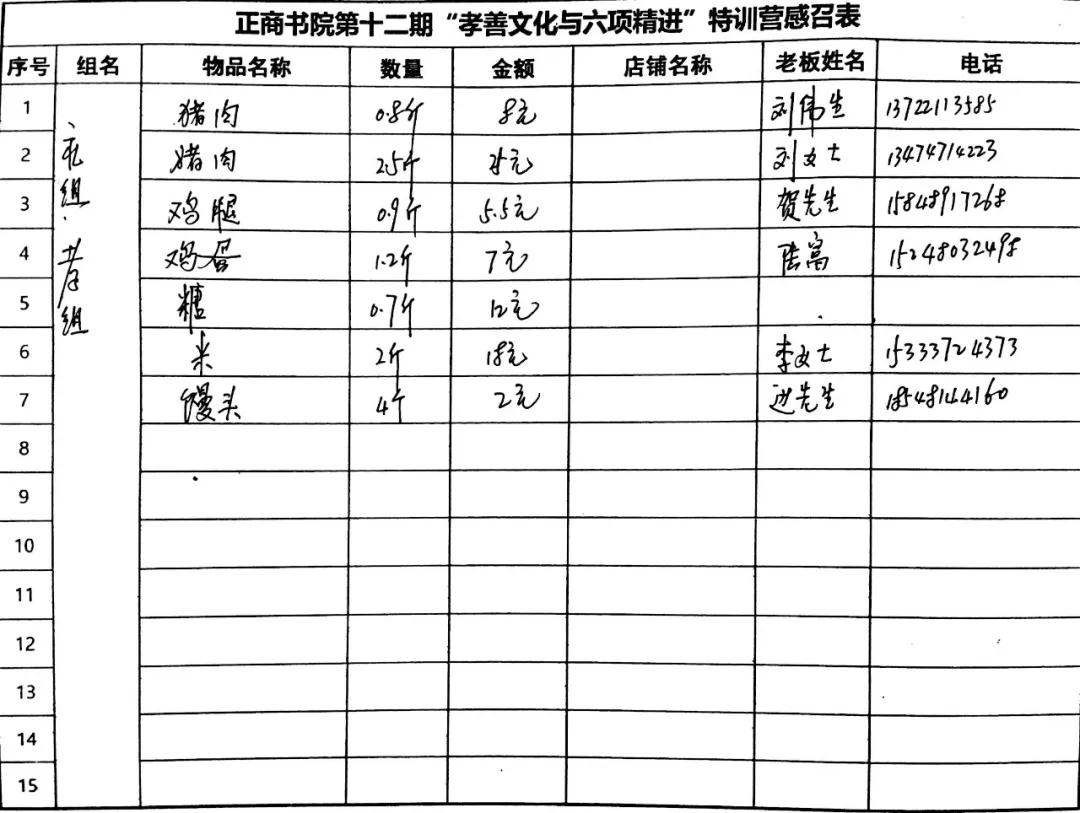 正商书院第十二期“孝善文化与六项精进”特训营感召表
序号 组名 物品名称 数量 金额 店铺名称 老板姓名 电话
1 猪肉 0.8斤 8元 刘伟生 13722113585
2 猪肉 2.5斤 25元 刘女士 13474714223
3 鸡腿 0.9斤 5.5元 贺先生 15848917268
4 鸡蛋 1.2斤 7元 陆富 15248032498
5 糖 0.7斤 12元
6 米 2斤 18元 李女士 15333724373
7 馒头 4个 2元 先生 18548144160
组 孝组
8
9
10
11
12
13
14
15